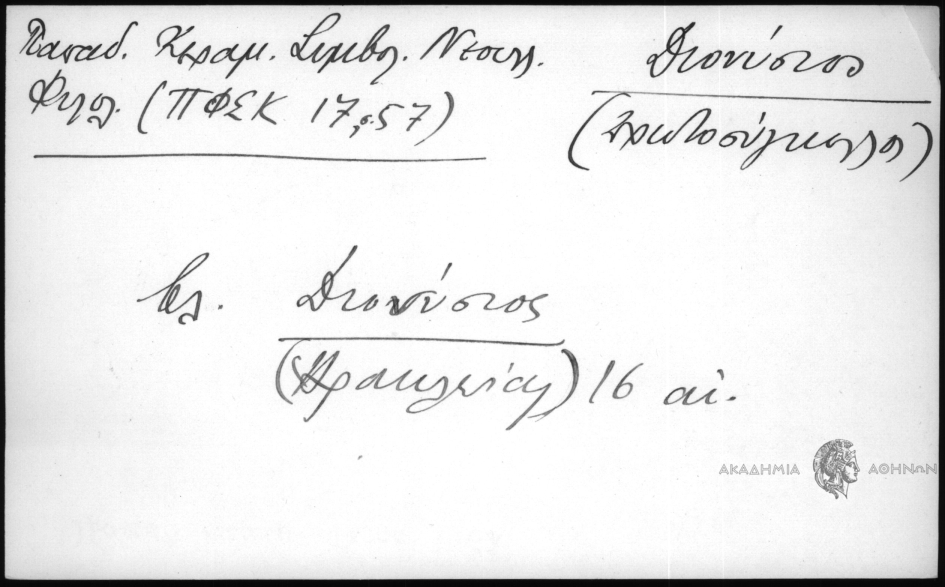 Παπαδ. Κεραμ. Συμβολ. Νεοελλ.
Φιλολ. (ΠΦΣΚ 17, σ. 57)
Διονύσιος
(Πρωτοσύγκελλος)
βλ. Διονύσιος
(Ηρακλείας) 16 αἰ.
ΑΚΑΔΗΜΙΑ ΑΘΗΝΩΝ